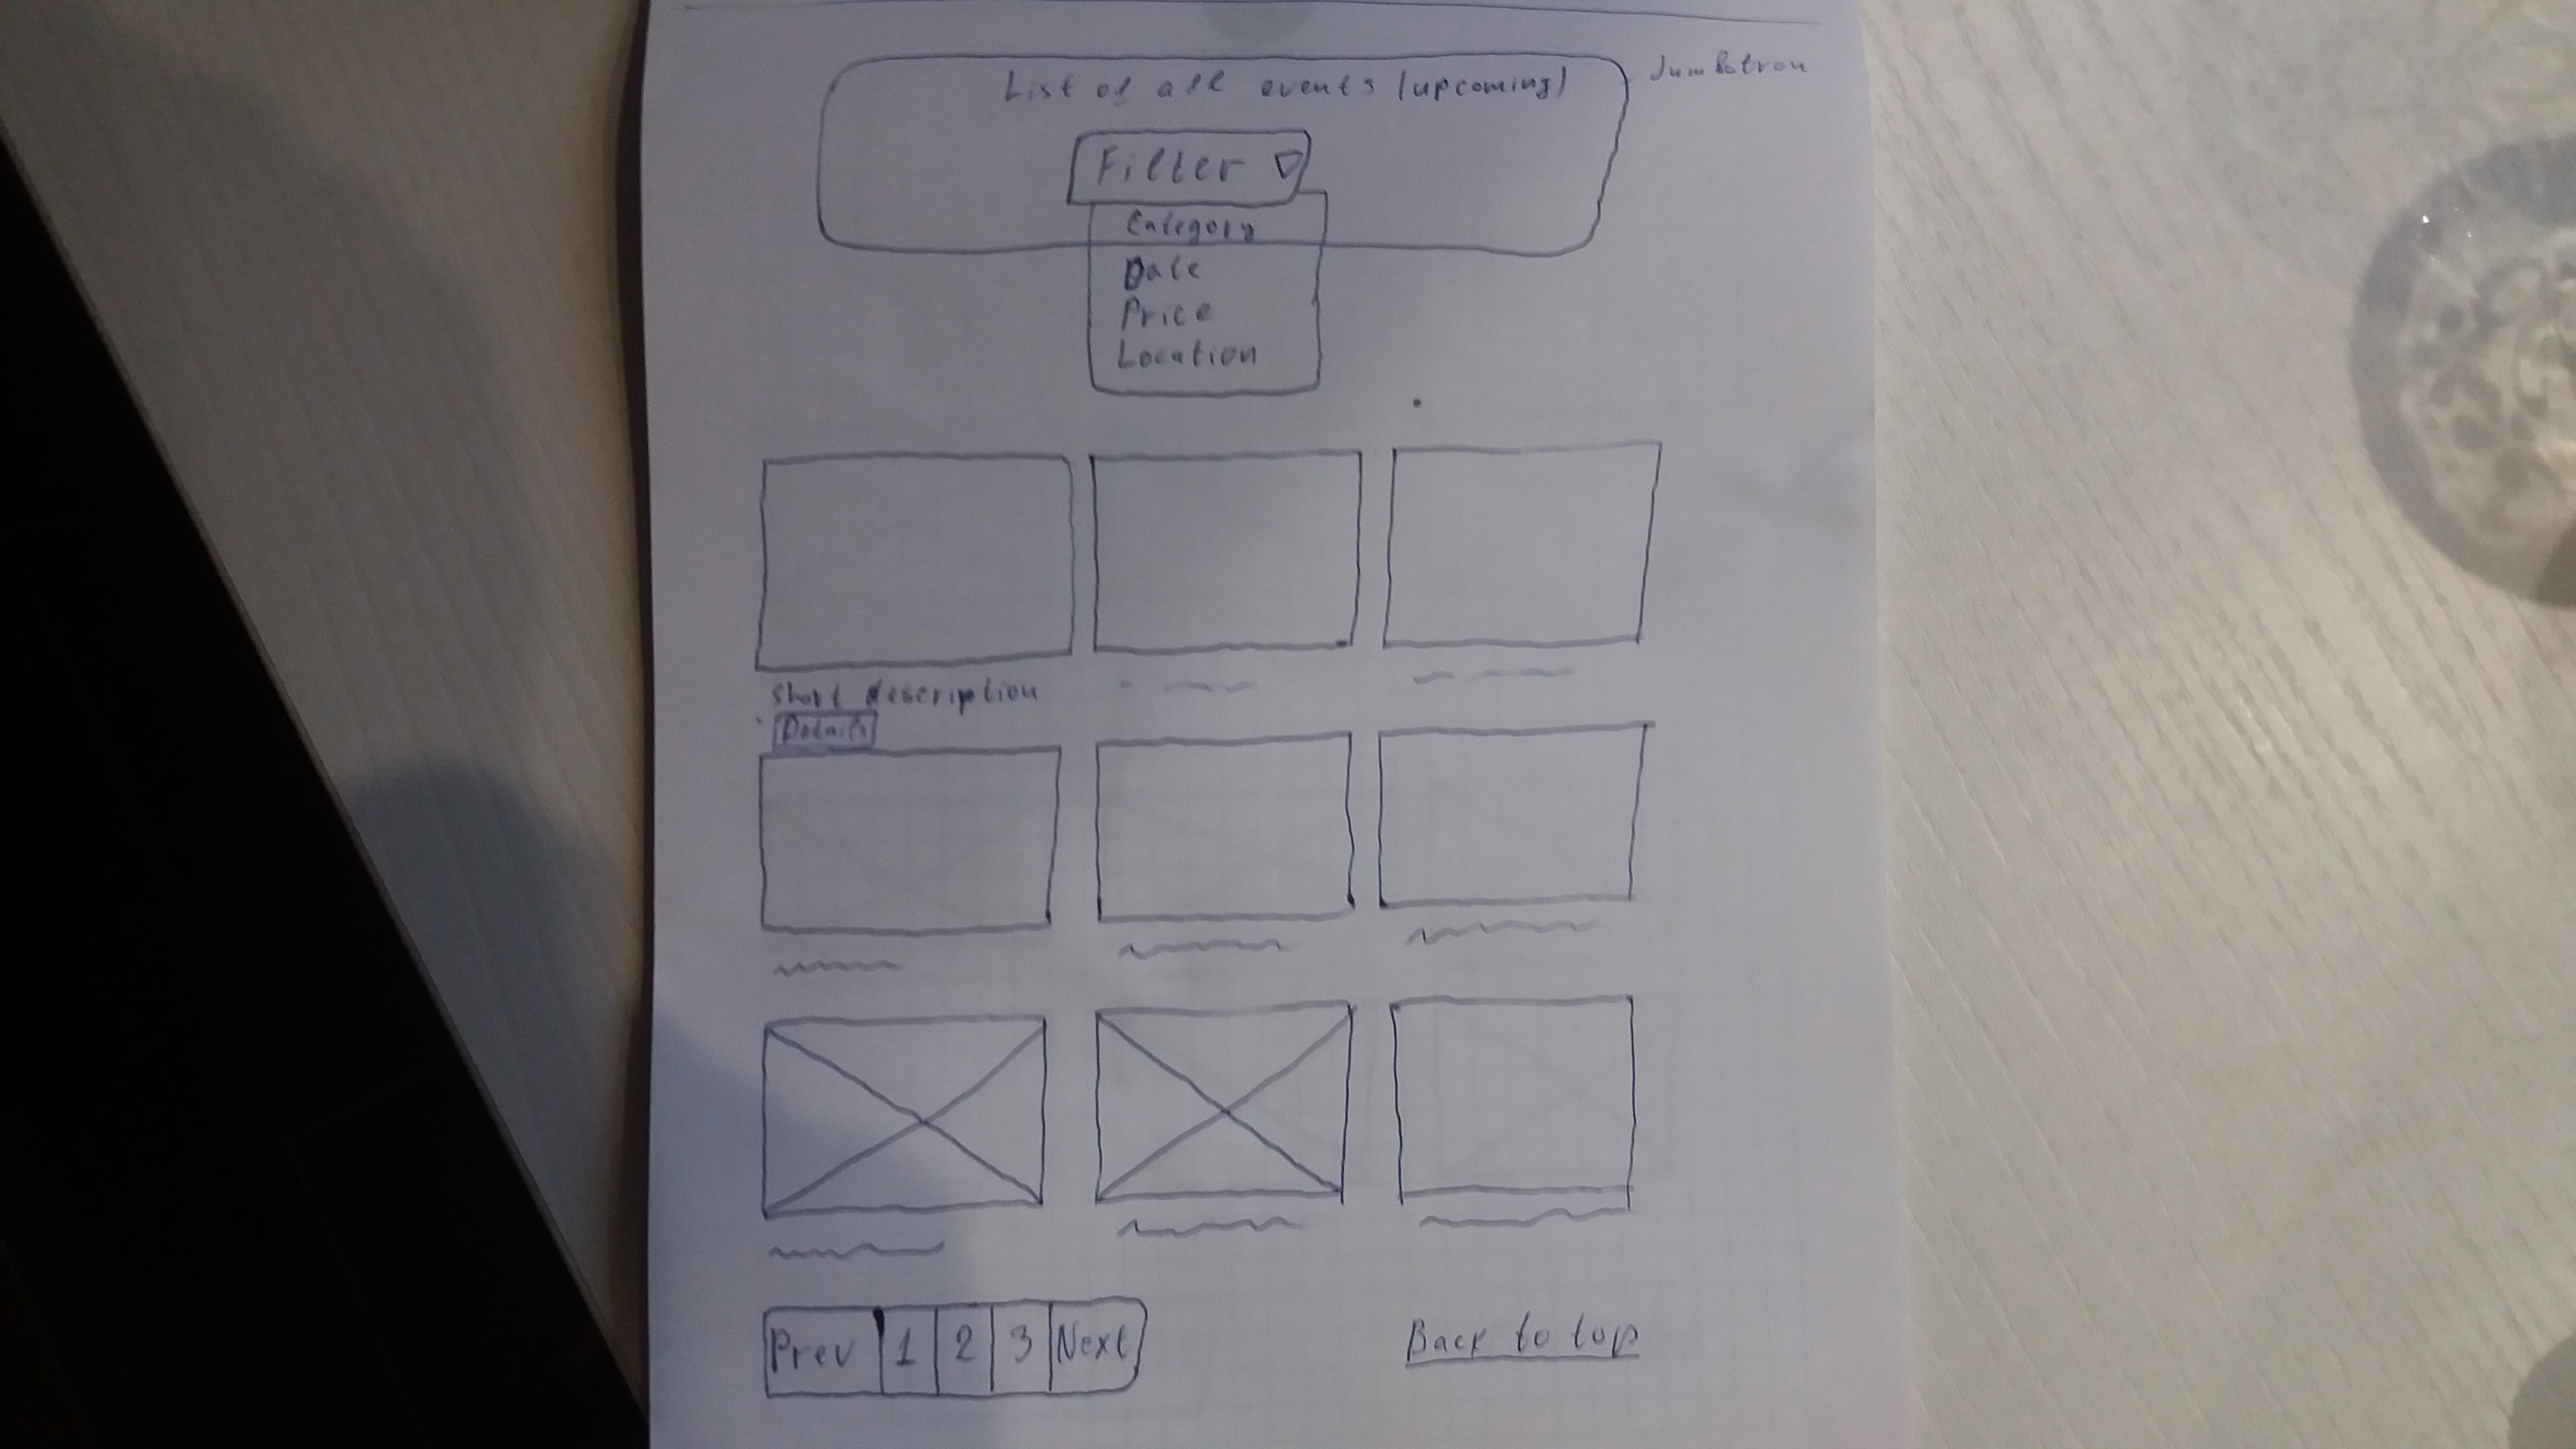 List of all events (upcoming)
Jumbotron
Filter
Category
Date
Price
Location
short description
Details
Prev 1 2 3 Next
Back to top